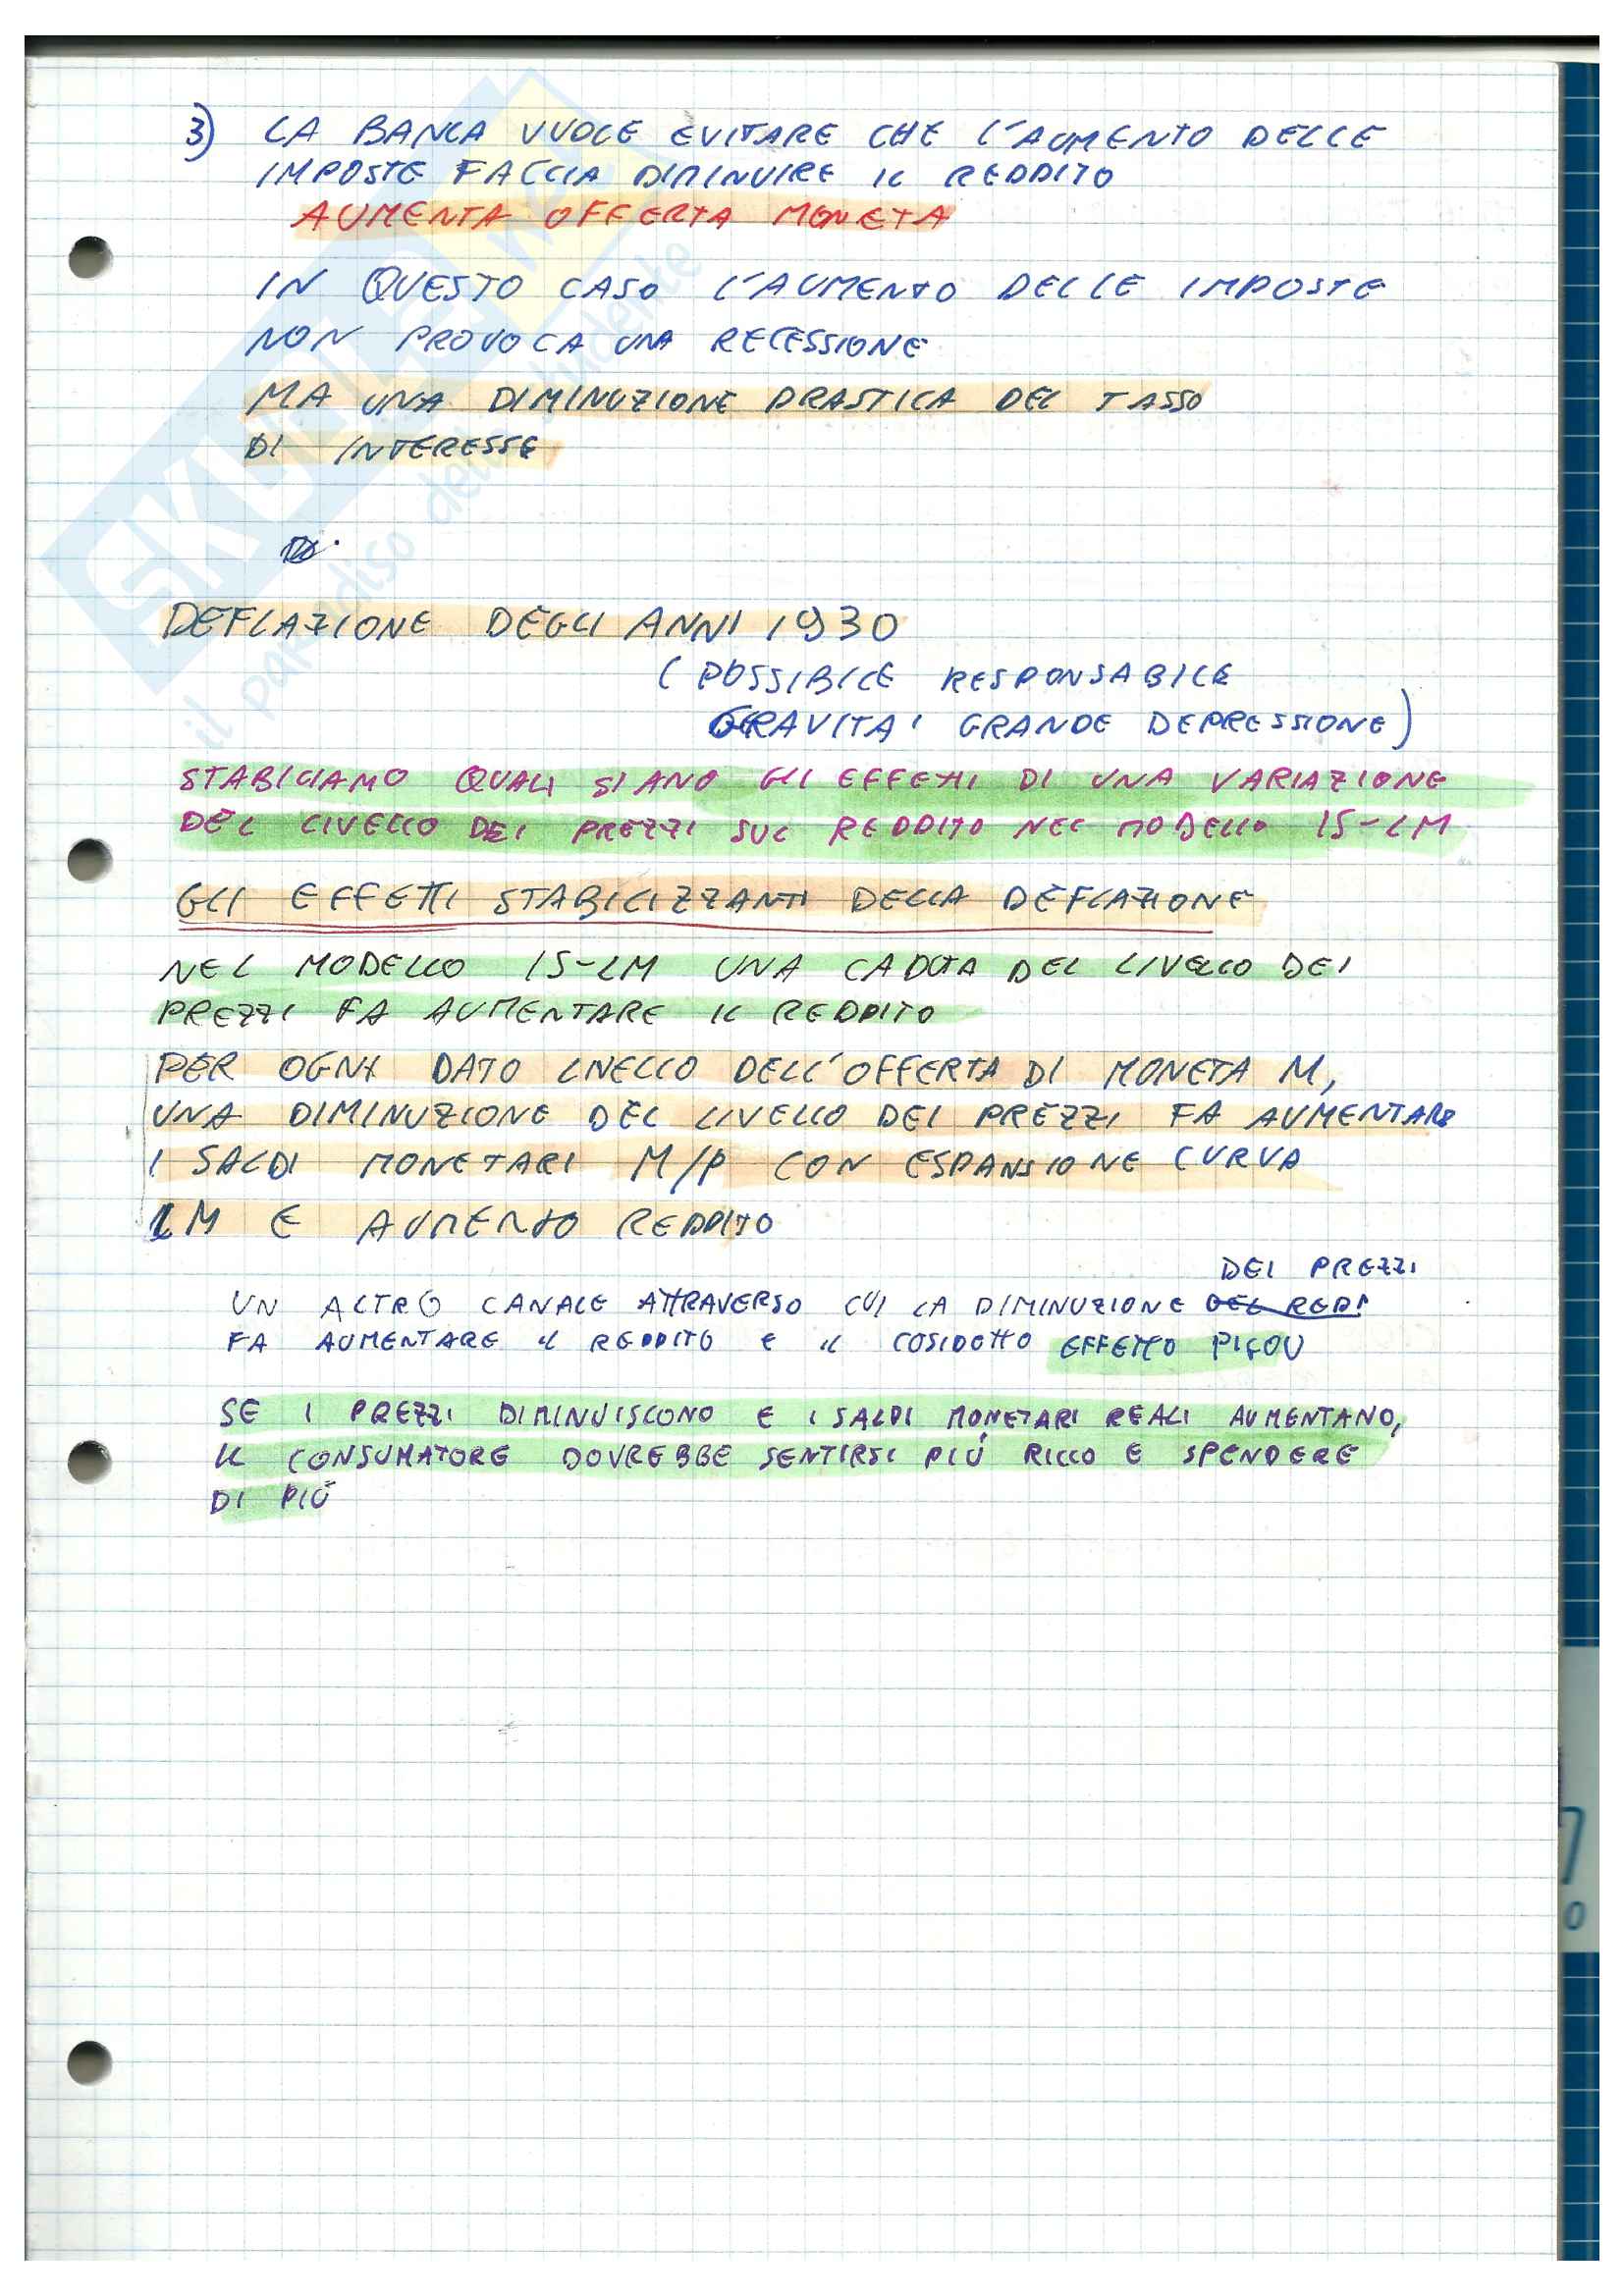 3) LA BANCA VUOLE EVITARE CHE L'AUMENTO DELLE
IMPOSTE FACCIA DIMINUIRE IL REDDITO
AUMENTA OFFERTA MONETA
IN QUESTO CASO L'AUMENTO DELLE IMPOSTE
NON PROVOCA UNA RECESSIONE
MA UNA DIMINUZIONE DRASTICA DEL TASSO
DI INTERESSE
DEFLAZIONE DEGLI ANNI 1930
(POSSIBILE RESPONSABILE
GRAVITA' GRANDE DEPRESSIONE)
STABILIAMO QUALI SIANO GLI EFFETTI DI UNA VARIAZIONE
DEL LIVELLO DEI PREZZI SUL REDDITO NEL MODELLO IS-LM
GLI EFFETTI STABILIZZANTI DELLA DEFLAZIONE
NEL MODELLO IS-LM UNA CADUTA DEL LIVELLO DEI
PREZZI FA AUMENTARE IL REDDITO
PER OGNI DATO LIVELLO DELL'OFFERTA DI MONETA M,
UNA DIMINUZIONE DEL LIVELLO DEI PREZZI FA AUMENTARE
I SALDI MONETARI M/P CON ESPANSIONE CURVA
LM E AUMENTO REDDITO
DEI PREZZI
UN ALTRO CANALE ATTRAVERSO CUI LA DIMINUZIONE DEL REDI
FA AUMENTARE IL REDDITO E IL COSIDOTTO EFFETTO PIGOU
SE I PREZZI DIMINUISCONO E I SALDI MONETARI REALI AUMENTANO,
IL CONSUMATORE DOVREBBE SENTIRSI PIÚ RICCO E SPENDERE
DI PIÚ
SKUOLA
il paradiso dello studente